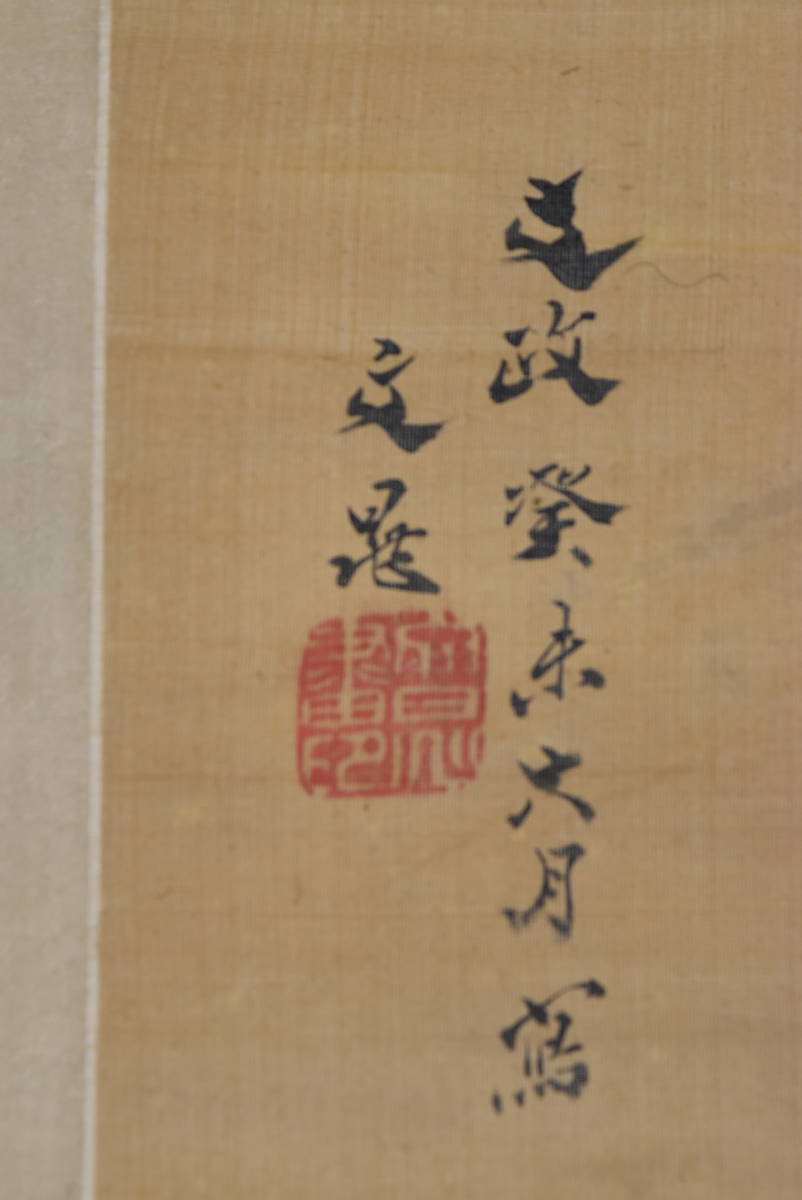 文政癸未六月寫
文晁